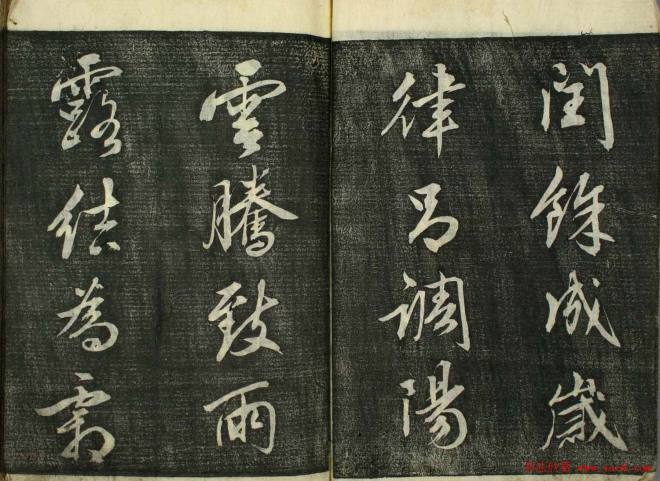 閏餘成歲
律呂調陽
雲騰致雨
露結為霜